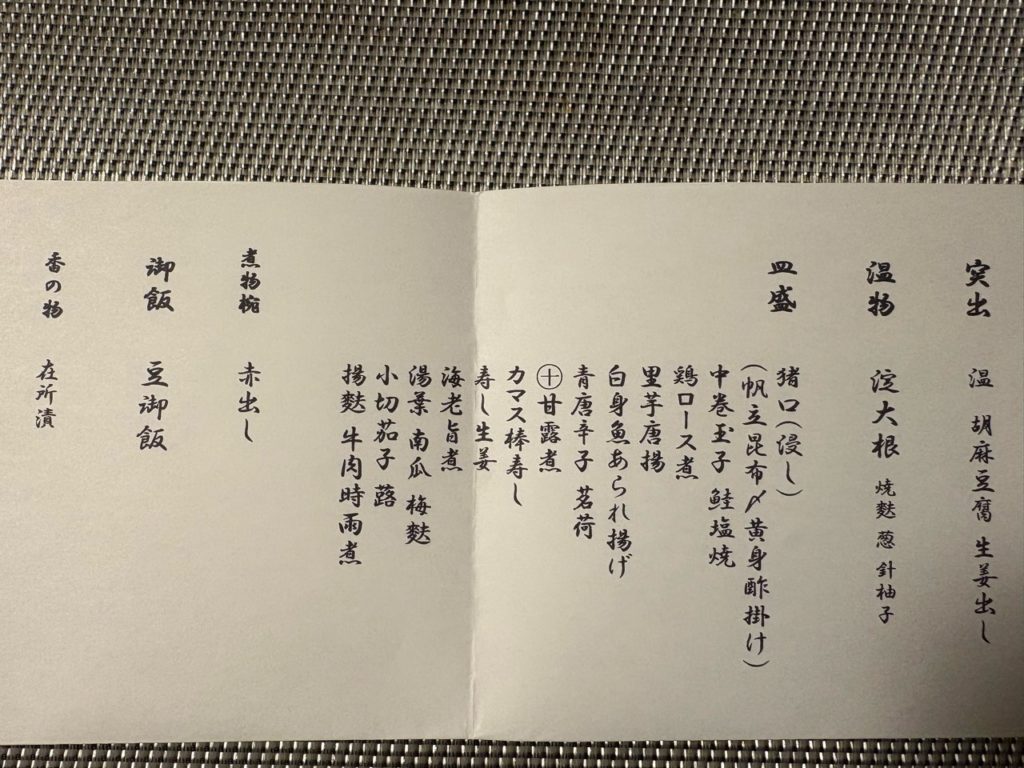 突出　温　胡麻豆腐 生姜出し
温物　淀大根 焼麩 葱 針柚子
皿盛　猪口(浸し)
(帆立昆布〆黄身酢掛け)
中巻玉子 鮭塩焼
鶏ロース煮
里芋唐揚
白身魚あられ揚げ
青唐辛子 茗荷
㊉甘露煮
カマス棒寿し
寿し生姜
海老旨煮
湯葉 南瓜 梅麩
小切茄子 蕗
揚麩 牛肉時雨煮
煮物椀　赤出し
御飯　豆御飯
香の物　在所漬